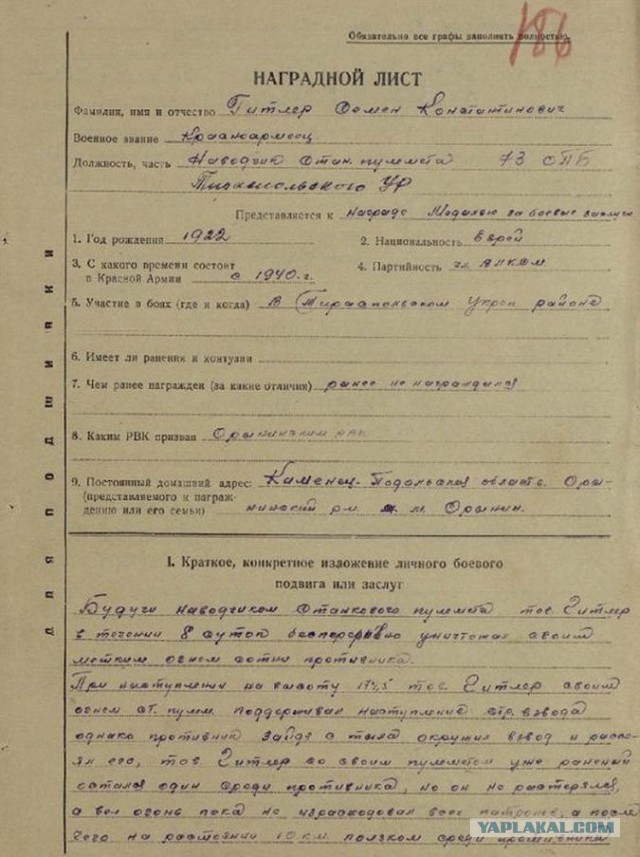 186
Обязательно все графы заполнять полностью.
НАГРАДНОЙ ЛИСТ
Фамилия, имя и отчество Гитлер Семен Константинович
Военное звание Красноармеец
Должность, часть Наводчик Станк. пулемета 73 ОПБ
Тираспольского УР
Представляется к награде Медалью за боевые заслуги
1. Год рождения 1922 2. Национальность Еврей
3. С какого времени состоит
в Красной Армии с 1940 г. 4. Партийность чл. ВЛКСМ
5. Участие в боях (где и когда) В Тираспольском Укреп районе
6. Имеет ли ранения и контузии
7. Чем ранее награжден (за какие отличия) ранее не награждался
8. Каким РВК призван Орынинским рвк
9. Постоянный домашний адрес: Каменец-Подольская область Оры-
(представляемого к награж-
дению или его семьи) нинский р-н. м. Орынин.
для подшивки
I. Краткое, конкретное изложение личного боевого
подвига или заслуг
Будучи наводчиком Станкового пулемета тов. Гитлер
в течении 8 суток бесперерывно уничтожал своим
метким огнем сотни противника.
При наступлении на высоту 174,5 тов. Гитлер своим
огнем ст. пулем. поддерживал наступление стр. взвода
однако противник зайдя с тыла окружил взвод и рассе-
ял его, тов. Гитлер со своим пулеметом уже раненый
остался один среди противника, но он не растерялся,
а вел огонь пока не израсходовал всех патронов, а после
чего на расстоянии 10 км. ползком среди противника
YAPLAKAL.COM